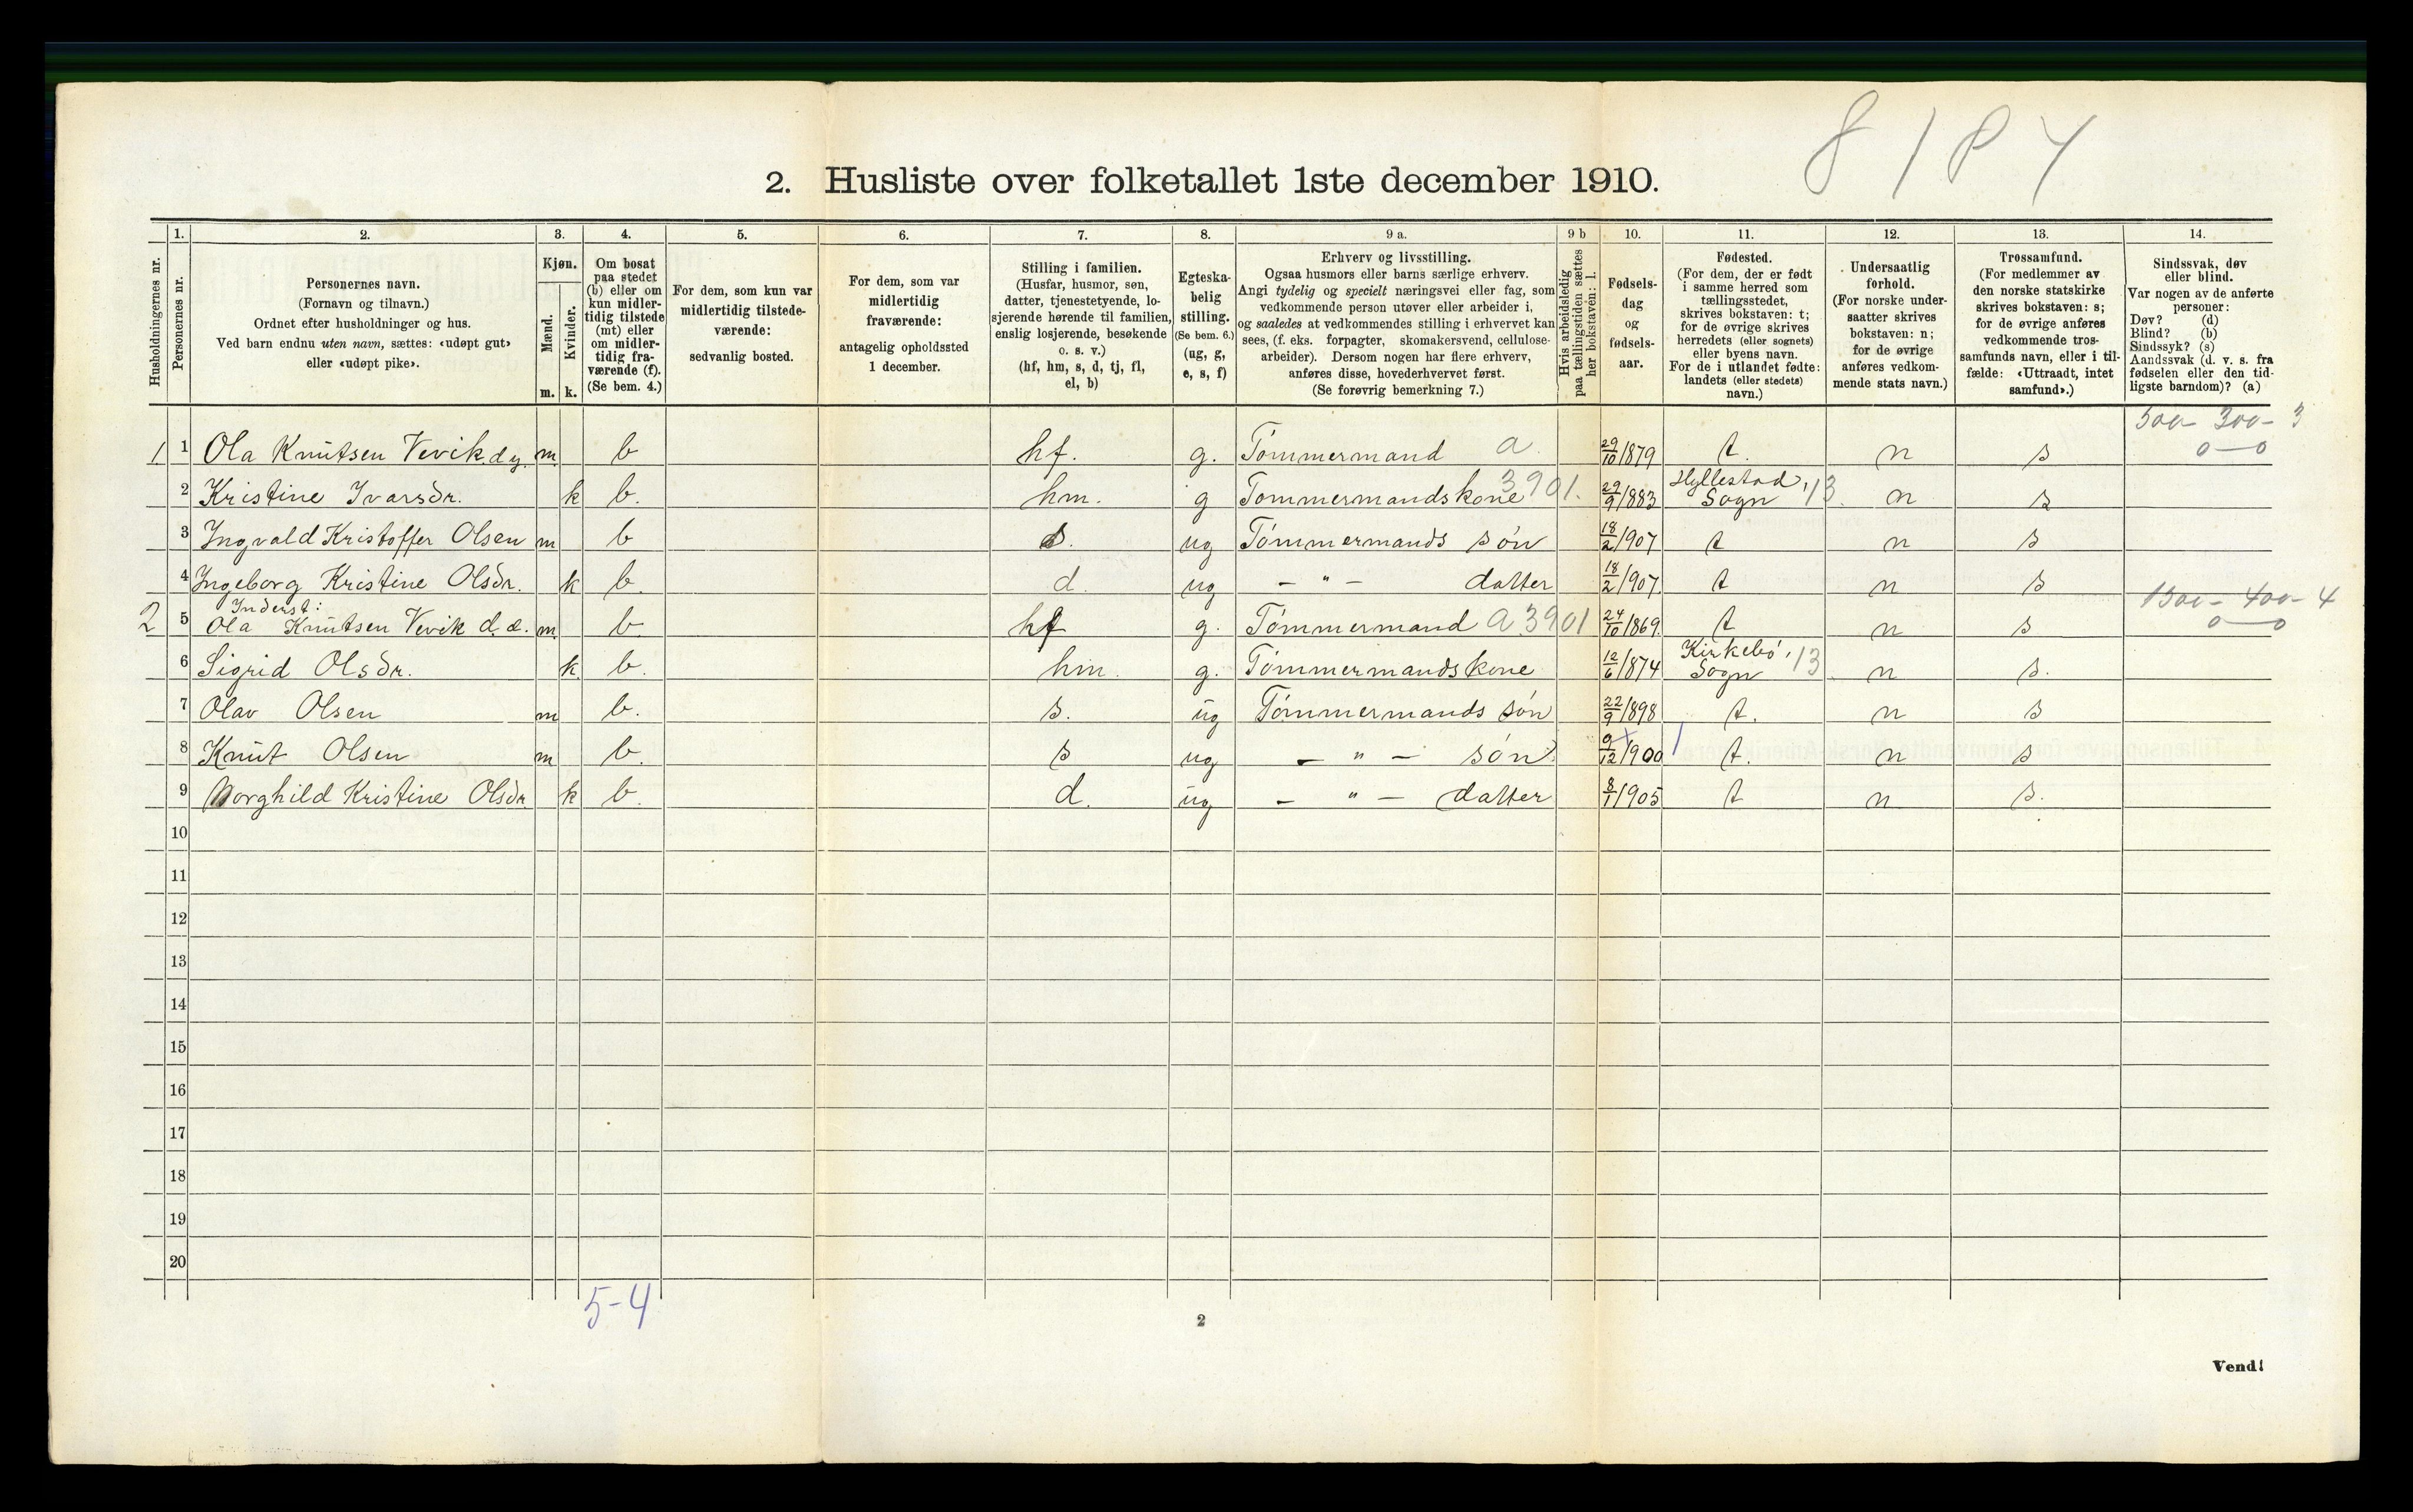 8184
2. Husliste over folketallet 1ste december 1910.
Husholdningernes nr.
1.
Personernes nr.
2.
Personernes navn.
(Fornavn og tilnavn.)
Ordnet efter husholdninger og hus.
Ved barn endnu uten navn, sættes: «udøpt gut»
eller «udøpt pike».
3.
Kjøn.
Mænd.
Kvinder.
m. k.
4.
Om bosat
paa stedet
(b) eller om
kun midler-
tidig tilstede
(mt) eller
om midler-
tidig fra-
værende (f).
(Se bem. 4.)
5.
For dem, som kun var
midlertidig tilstede-
værende:
sedvanlig bosted.
6.
For dem, som var
midlertidig
fraværende:
antagelig opholdssted
1 december.
7.
Stilling i familien.
(Husfar, husmor, søn,
datter, tjenestetyende, lo-
sjerende hørende til familien,
enslig losjerende, besøkende
o. s. v.)
(hf, hm, s, d, tj, fl,
el, b)
8.
Egteska-
belig
stilling.
(Se bem. 6.)
(ug, g,
e, s, f)
9 a.
Erhverv og livsstilling.
Ogsaa husmors eller barns særlige erhverv.
Angi tydelig og specielt næringsvei eller fag, som
vedkommende person utøver eller arbeider i,
og saaledes at vedkommendes stilling i erhvervet kan
sees, (f. eks. forpagter, skomakersvend, cellulose-
arbeider). Dersom nogen har flere erhverv,
anføres disse, hovederhvervet først.
(Se forøvrig bemerkning 7.)
9 b
Hvis arbeidsledig
paa tællingstiden sættes
her bokstaven: l.
10.
Fødsels-
dag
og
fødsels-
aar.
11.
Fødested.
(For dem, der er født
i samme herred som
tællingsstedet,
skrives bokstaven: t;
for de øvrige skrives
herredets (eller sognets)
eller byens navn.
For de i utlandet fødte:
landets (eller stedets)
navn.)
12.
Undersaatlig
forhold.
(For norske under-
saatter skrives
bokstaven: n;
for de øvrige
anføres vedkom-
mende stats navn.)
13.
Trossamfund.
(For medlemmer av
den norske statskirke
skrives bokstaven: s;
for de øvrige anføres
vedkommende tros-
samfunds navn, eller i til-
fælde: «Uttraadt, intet
samfund».)
14.
Sindssvak, døv
eller blind.
Var nogen av de anførte
personer:
Døv? (d)
Blind? (b)
Sindssyk? (s)
Aandssvak (d. v. s. fra
fødselen eller den tid-
ligste barndom)? (a)
500- 300- 3
1 1 Ola Knutsen Vevik d.y. m b hf. g. Tømmermand a 29/10 1879 t. n s 0—0
2 Kristine Ivarsdr. k b. hm. g Tømmermandskone 3901. 29/9 1883 Hyllestad, Sogn 13 n s
3 Ingvald Kristoffer Olsen m b s. ug Tømmermands søn 18/2 1907 t n s
4 Ingeborg Kristine Olsdr. k b. d. ug - " - datter 18/2 1907. t n s
Inderst: 1500- 400- 4
2 5 Ola Knutsen Vevik d.e. m. b. hf g. Tømmermand a 3901 24/10 1869. t n s 0—0
6 Sigrid Olsdr. k b. hm. g. Tømmermandskone 12/6 1874 Kirkebø, Sogn 13 n s.
7 Olav Olsen m b. s. ug Tømmermands søn 22/9 1898 t. n s
8 Knut Olsen m b. s ug - " - søn 9/12 1900 t. n s
9 Borghild Kristine Olsdr k b. d. ug - " - datter 8/1 1905 t n s.
10
11
12
13
14
15
16
17
18
19
20
5-4
2
Vend!